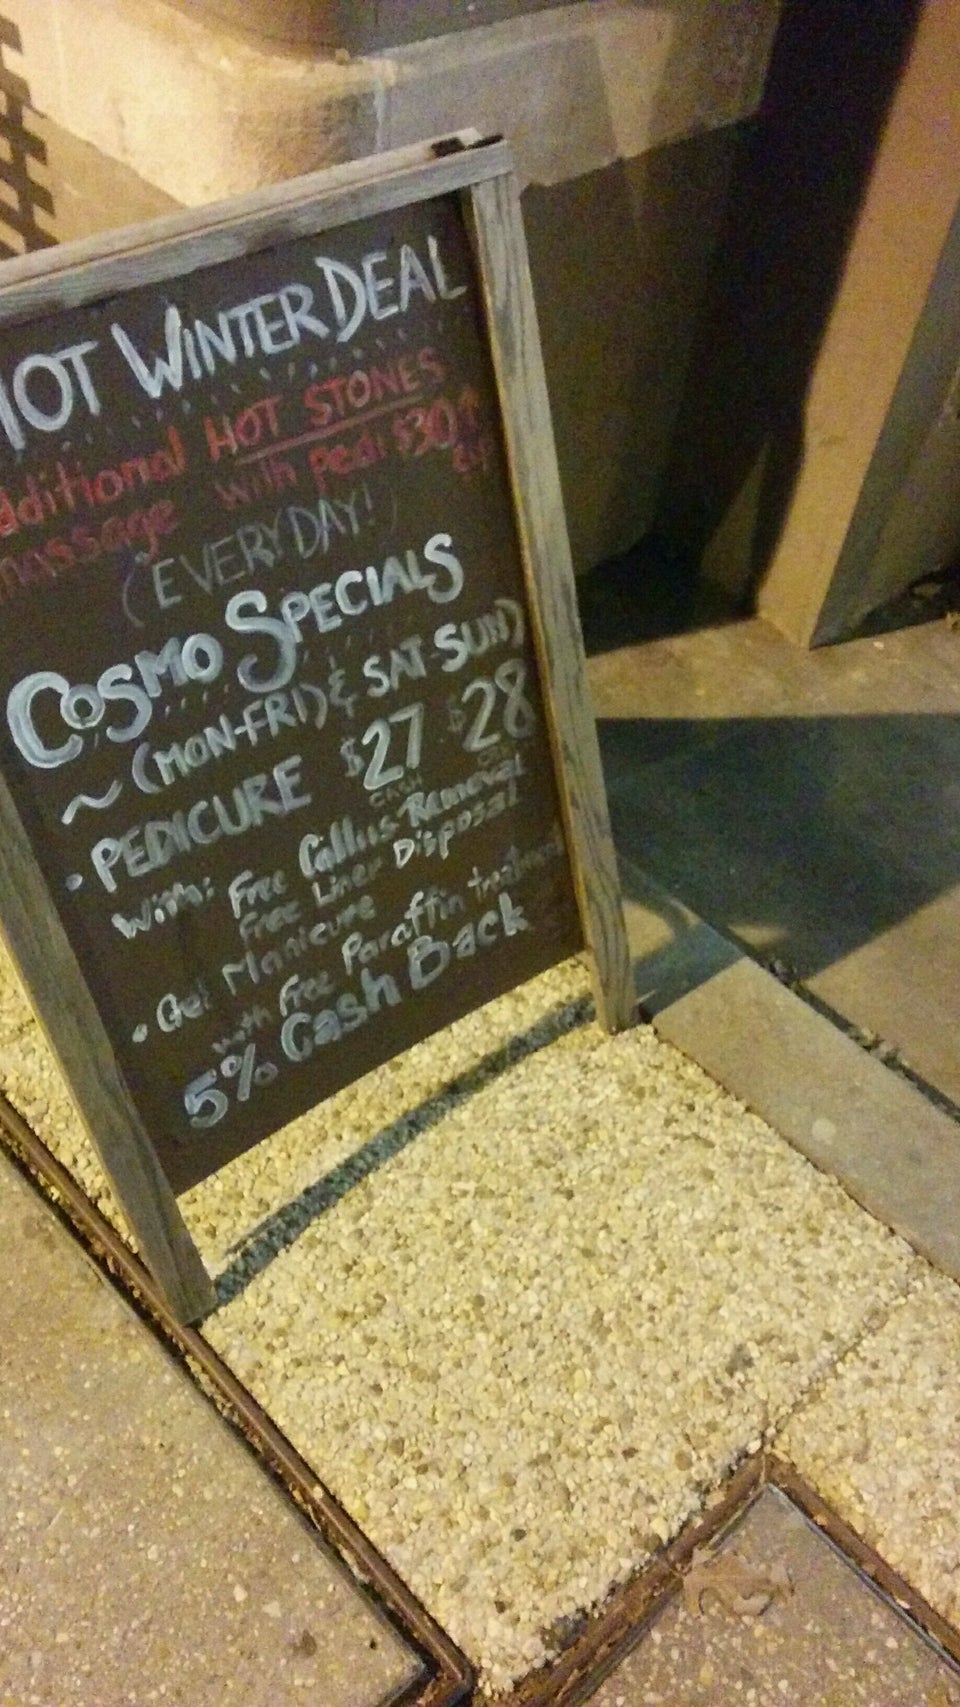 HOT WINTER DEAL
additional HOT STONES
massage with pedi $30 ↑
(EVERYDAY!)
COSMO SPECIALS
~ (MON-FRI) & SAT-SUN)
• PEDICURE $27 $28
CASH
With: Free Callus Removal
Free Liner Disposal
• Gel Manicure
with Free Paraffin treatment
5% Cash Back